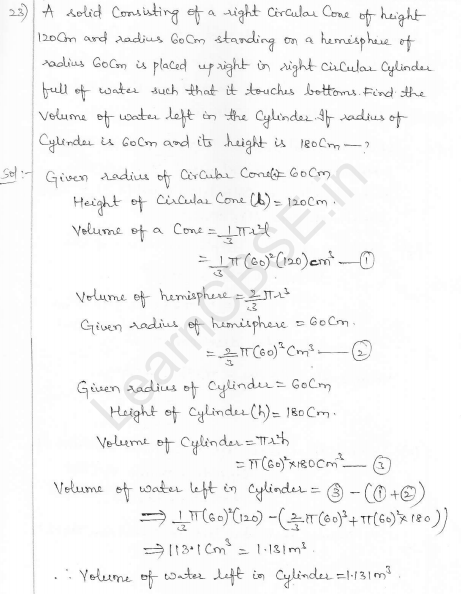 23) A solid Consisting of a right Circular Cone of height
120Cm and radius 60Cm standing on a hemisphere of
radius 60Cm is placed upright in right circular Cylinder
full of water such that it touches bottoms. Find the
Volume of water left in the Cylinder. If radius of
Cylinder is 60Cm and its height is 180Cm — ?
Sol:- Given radius of Circular Cone(r)= 60Cm
Height of Circular Cone (l) = 120Cm.
Volume of a Cone = 1/3 πr²l
= 1/3 π (60)² (120) cm³ — ①
Volume of hemisphere = 2/3 πr³
Given radius of hemisphere = 60Cm.
= 2/3 π (60)³ Cm³ — ②
Given radius of Cylinder = 60Cm
Height of Cylinder (h) = 180Cm.
Volume of Cylinder = πr²h
= π(60)² × 180Cm³ — ③
Volume of water left in Cylinder = ③ - (① + ②)
⇒ 1/3 π(60)² (120) - (2/3 π(60)³ + π(60)² × 180))
⇒ 113.1 Cm³ = 1.131m³.
∴ Volume of water left in Cylinder = 1.131m³.
LearnCBSE.in